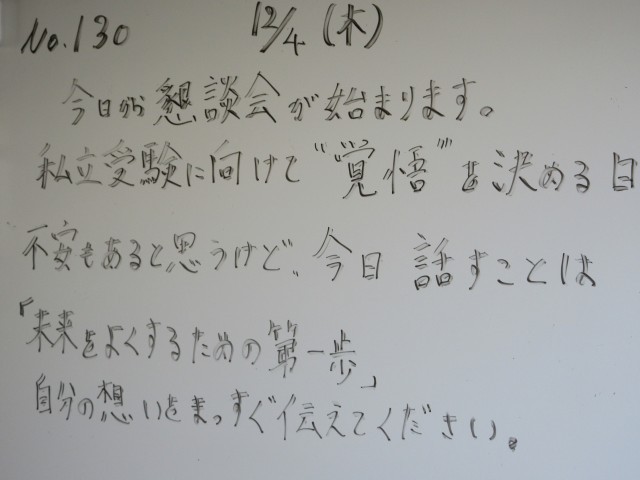 No.130 12/4 (木)
今日から懇談会が始まります。
私立受験に向けて"覚悟"を決める日
不安もあると思うけど、今日 話すことは
「未来をよくするための第一歩」
自分の想いをまっすぐ伝えてください。